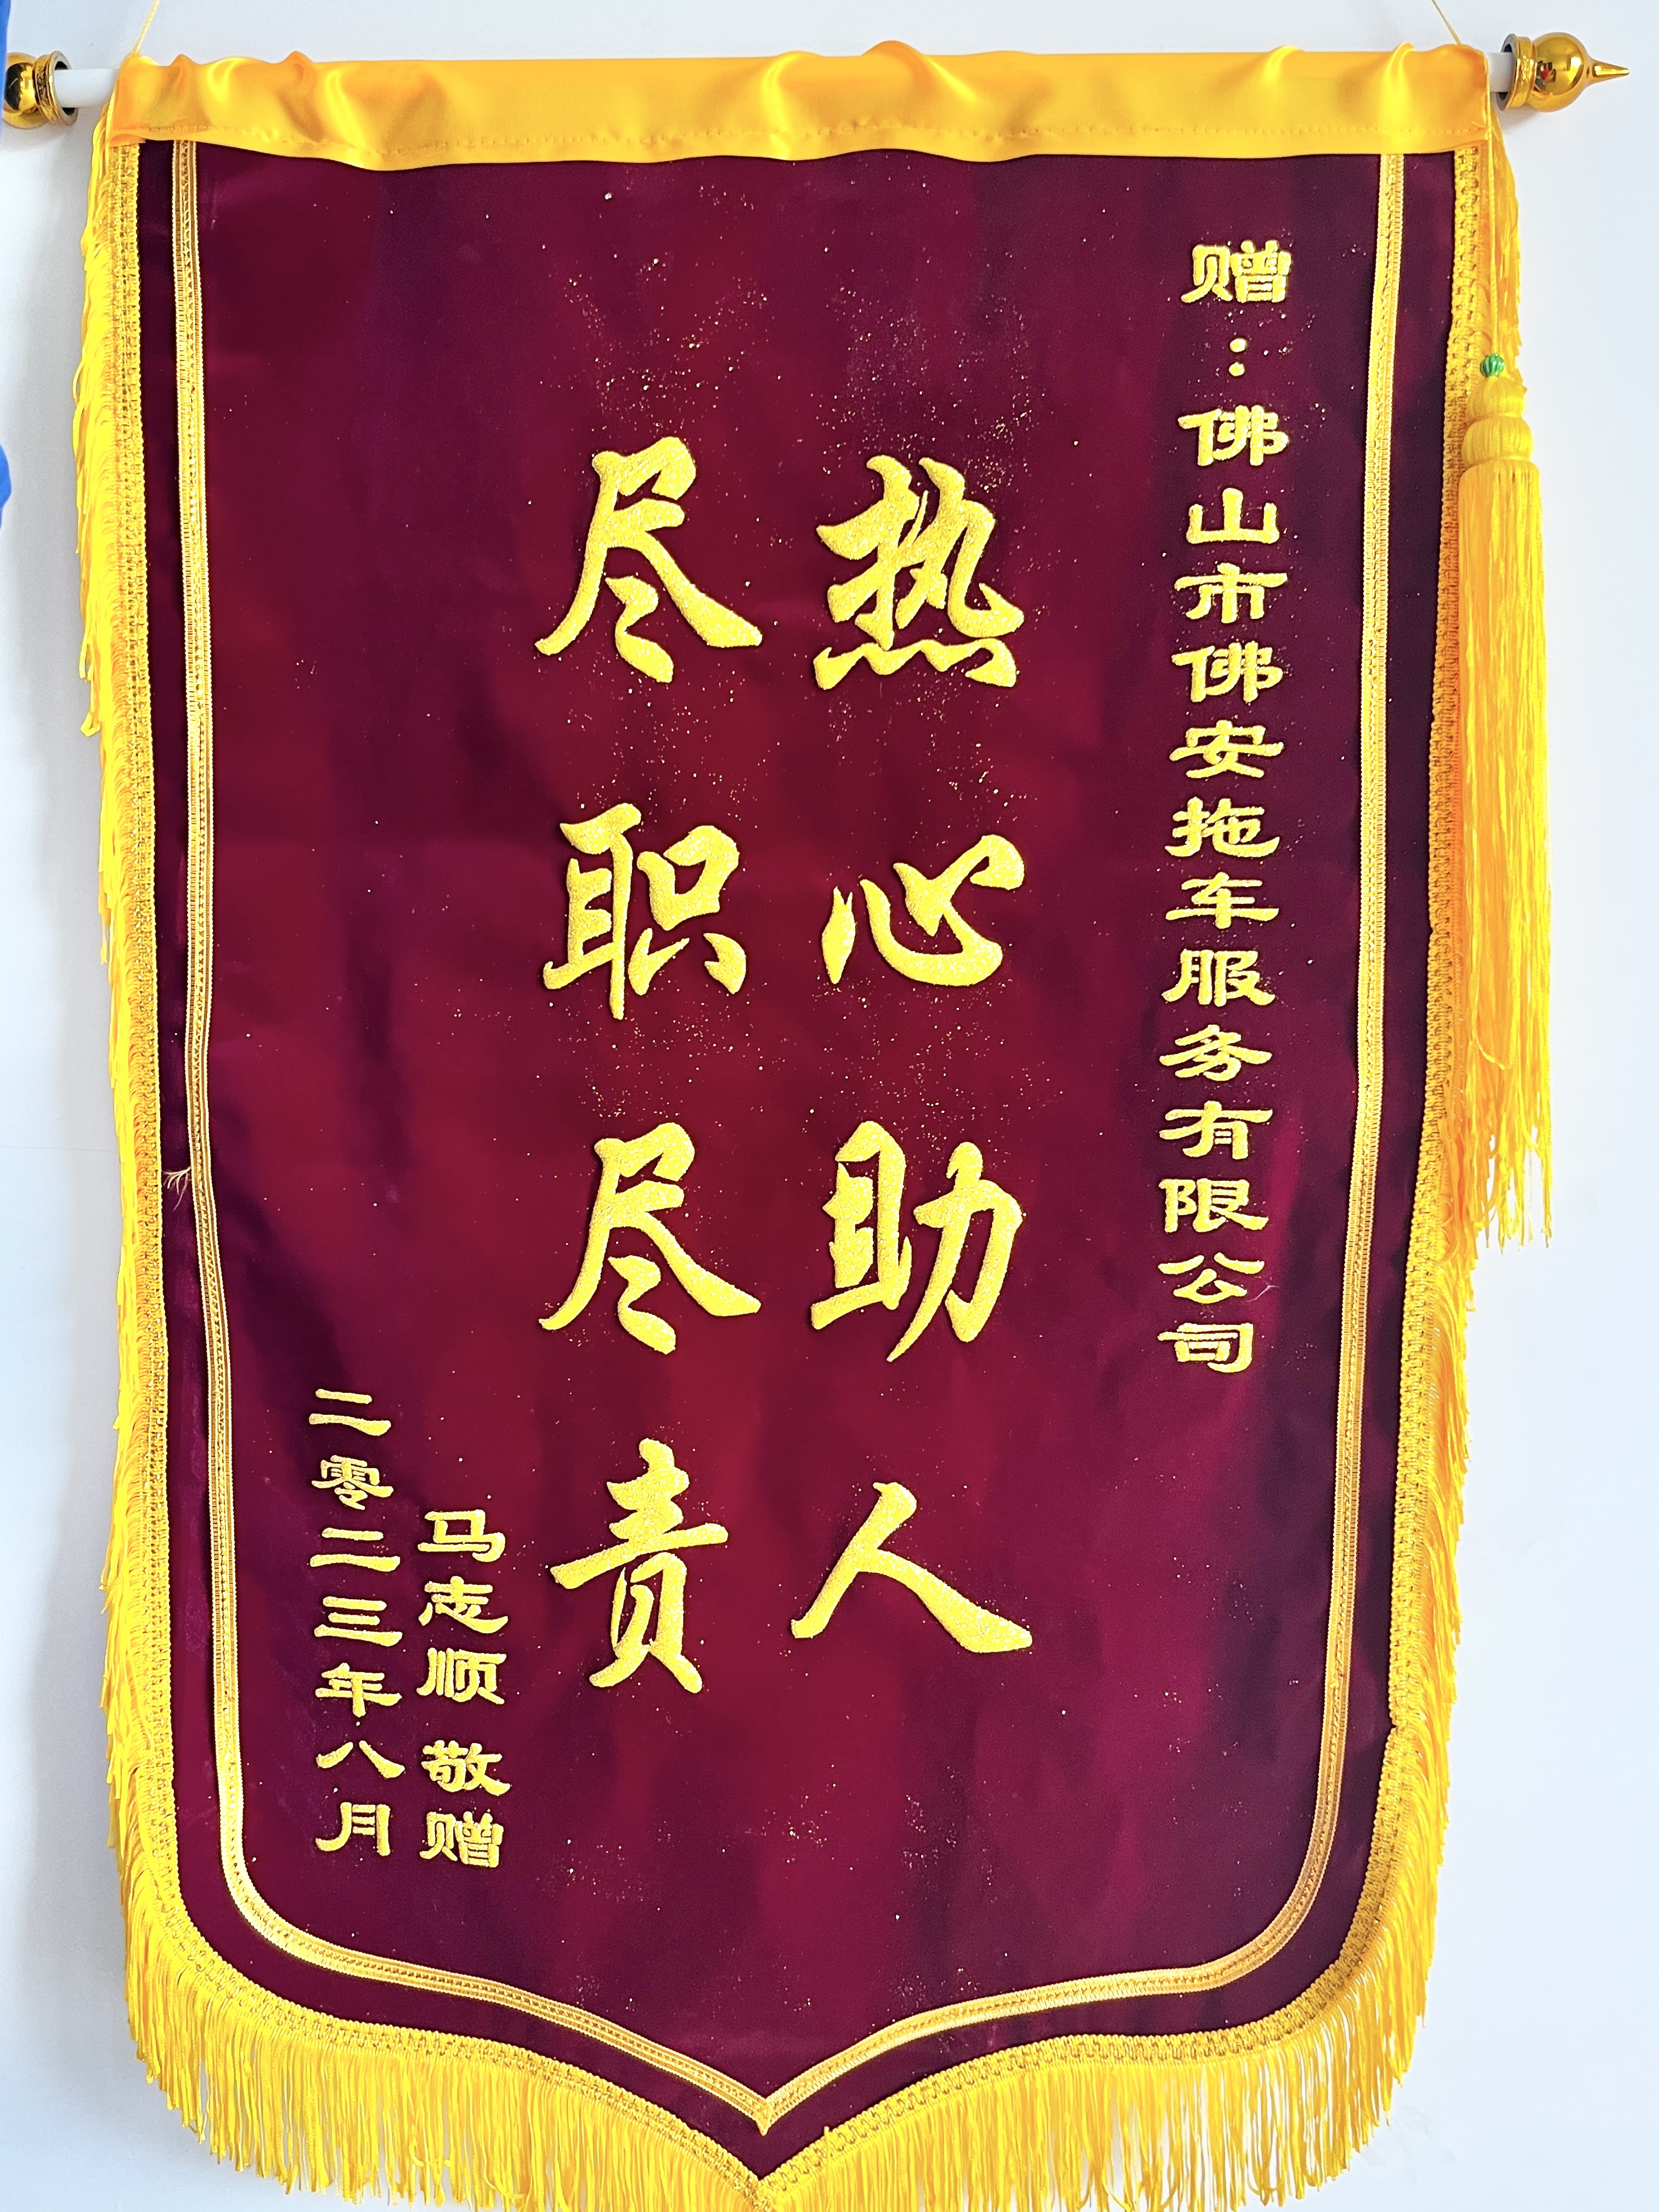 赠：佛山市佛安拖车服务有限公司
热心助人
尽职尽责
马志顺 敬赠
二零二三年八月